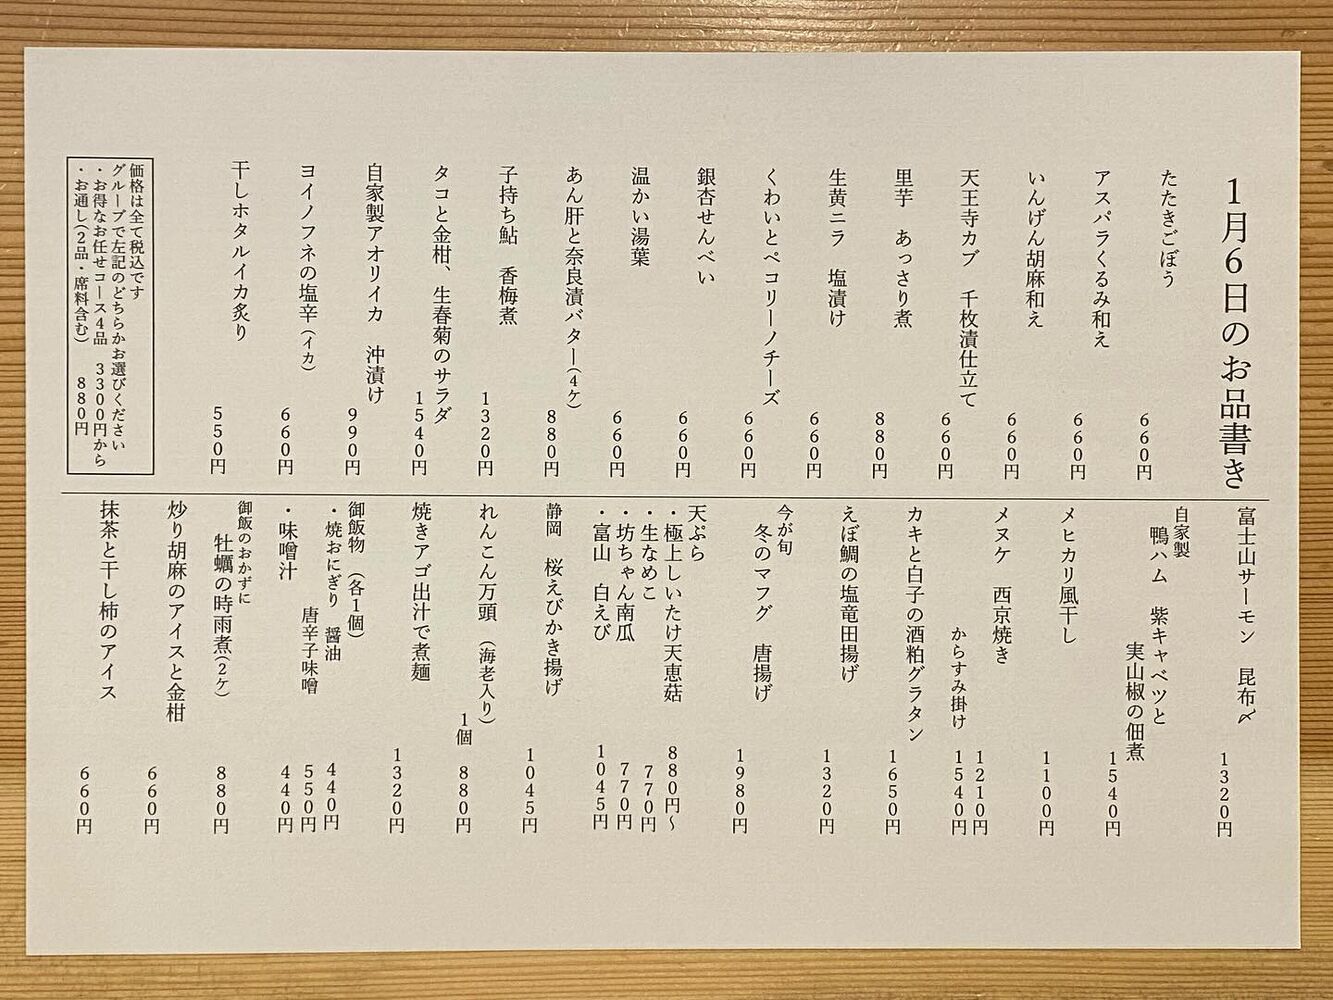 1月6日のお品書き
たたきごぼう
660円
アスパラくるみ和え
660円
いんげん胡麻和え
660円
天王寺カブ　千枚漬仕立て
660円
里芋　あっさり煮
880円
生黄ニラ　塩漬け
660円
くわいとペコリーノチーズ
660円
銀杏せんべい
660円
温かい湯葉
660円
あん肝と奈良漬バター(4ケ)
880円
子持ち鮎　香梅煮
1320円
タコと金柑、生春菊のサラダ
1540円
自家製アオリイカ　沖漬け
990円
ヨイノフネの塩辛(イカ)
660円
干しホタルイカ炙り
550円
価格は全て税込です
グループで左記のどちらかお選びください
・お得なお任せコース4品　3300円から
・お通し(2品・席料含む)　880円
富士山サーモン　昆布〆
1320円
自家製
鴨ハム　紫キャベツと
実山椒の佃煮
1540円
メヒカリ風干し
1100円
メヌケ　西京焼き
1210円
からすみ掛け
1540円
カキと白子の酒粕グラタン
1650円
えぼ鯛の塩竜田揚げ
1320円
今が旬
冬のマフグ　唐揚げ
1980円
天ぷら
・極上しいたけ天恵菇　880円〜
・生なめこ　770円
・坊ちゃん南瓜　770円
・富山　白えび　1045円
静岡　桜えびかき揚げ
1045円
れんこん万頭　(海老入り)
1個　880円
焼きアゴ出汁で煮麺
1320円
御飯物　(各1個)
・焼おにぎり　醤油　440円
唐辛子味噌　550円
・味噌汁　440円
御飯のおかずに
牡蠣の時雨煮(2ケ)
880円
炒り胡麻のアイスと金柑
660円
抹茶と干し柿のアイス
660円